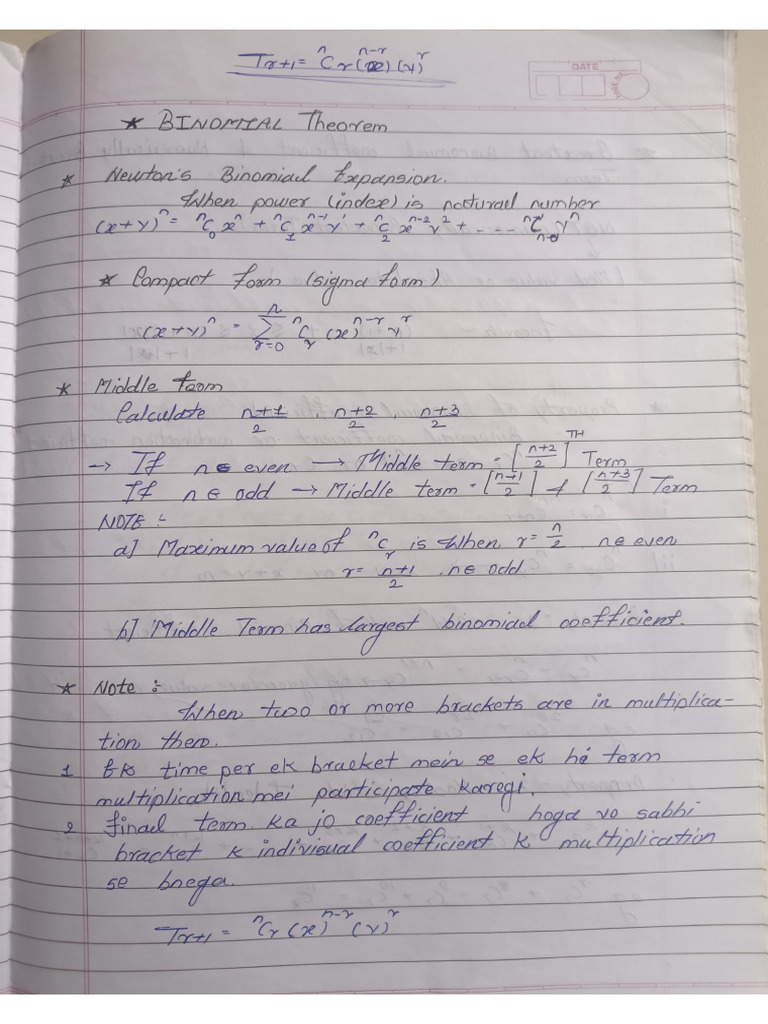 T_{r+1} = ⁿC_r (x)^{n-r} (y)^r
DATE
★ BINOMIAL Theorem
★ Newton's Binomial Expansion.
When power (index) is natural number
(x+y)ⁿ = ⁿC₀ xⁿ + ⁿC₁ x^{n-1} y¹ + ⁿC₂ x^{n-2} y² + - - - - ⁿCₙ yⁿ
★ Compact form (sigma form)
(x+y)ⁿ = Σ_{r=0}^{n} ⁿC_r (x)^{n-r} y^r
★ Middle term
Calculate (n+1)/2 , (n+2)/2 , (n+3)/2
→ If n∈ even → Middle term = [(n+2)/2]^{TH} Term
If n∈ odd → Middle term = [(n+1)/2] & [(n+3)/2] Term
NOTE :-
a] Maximum value of ⁿC_r is When r = n/2 , n∈ even
r = (n+1)/2 , n∈ odd
b] Middle Term has largest binomial coefficient.
★ Note :
When two or more brackets are in multiplica-
tion then.
1 Ek time per ek bracket mein se ek he term
multiplication mei participate karegi.
2 final term ka jo coefficient hoga vo sabhi
bracket k indivisual coefficient k multiplication
se bnega.
T_{r+1} = ⁿC_r (x)^{n-r} (y)^r